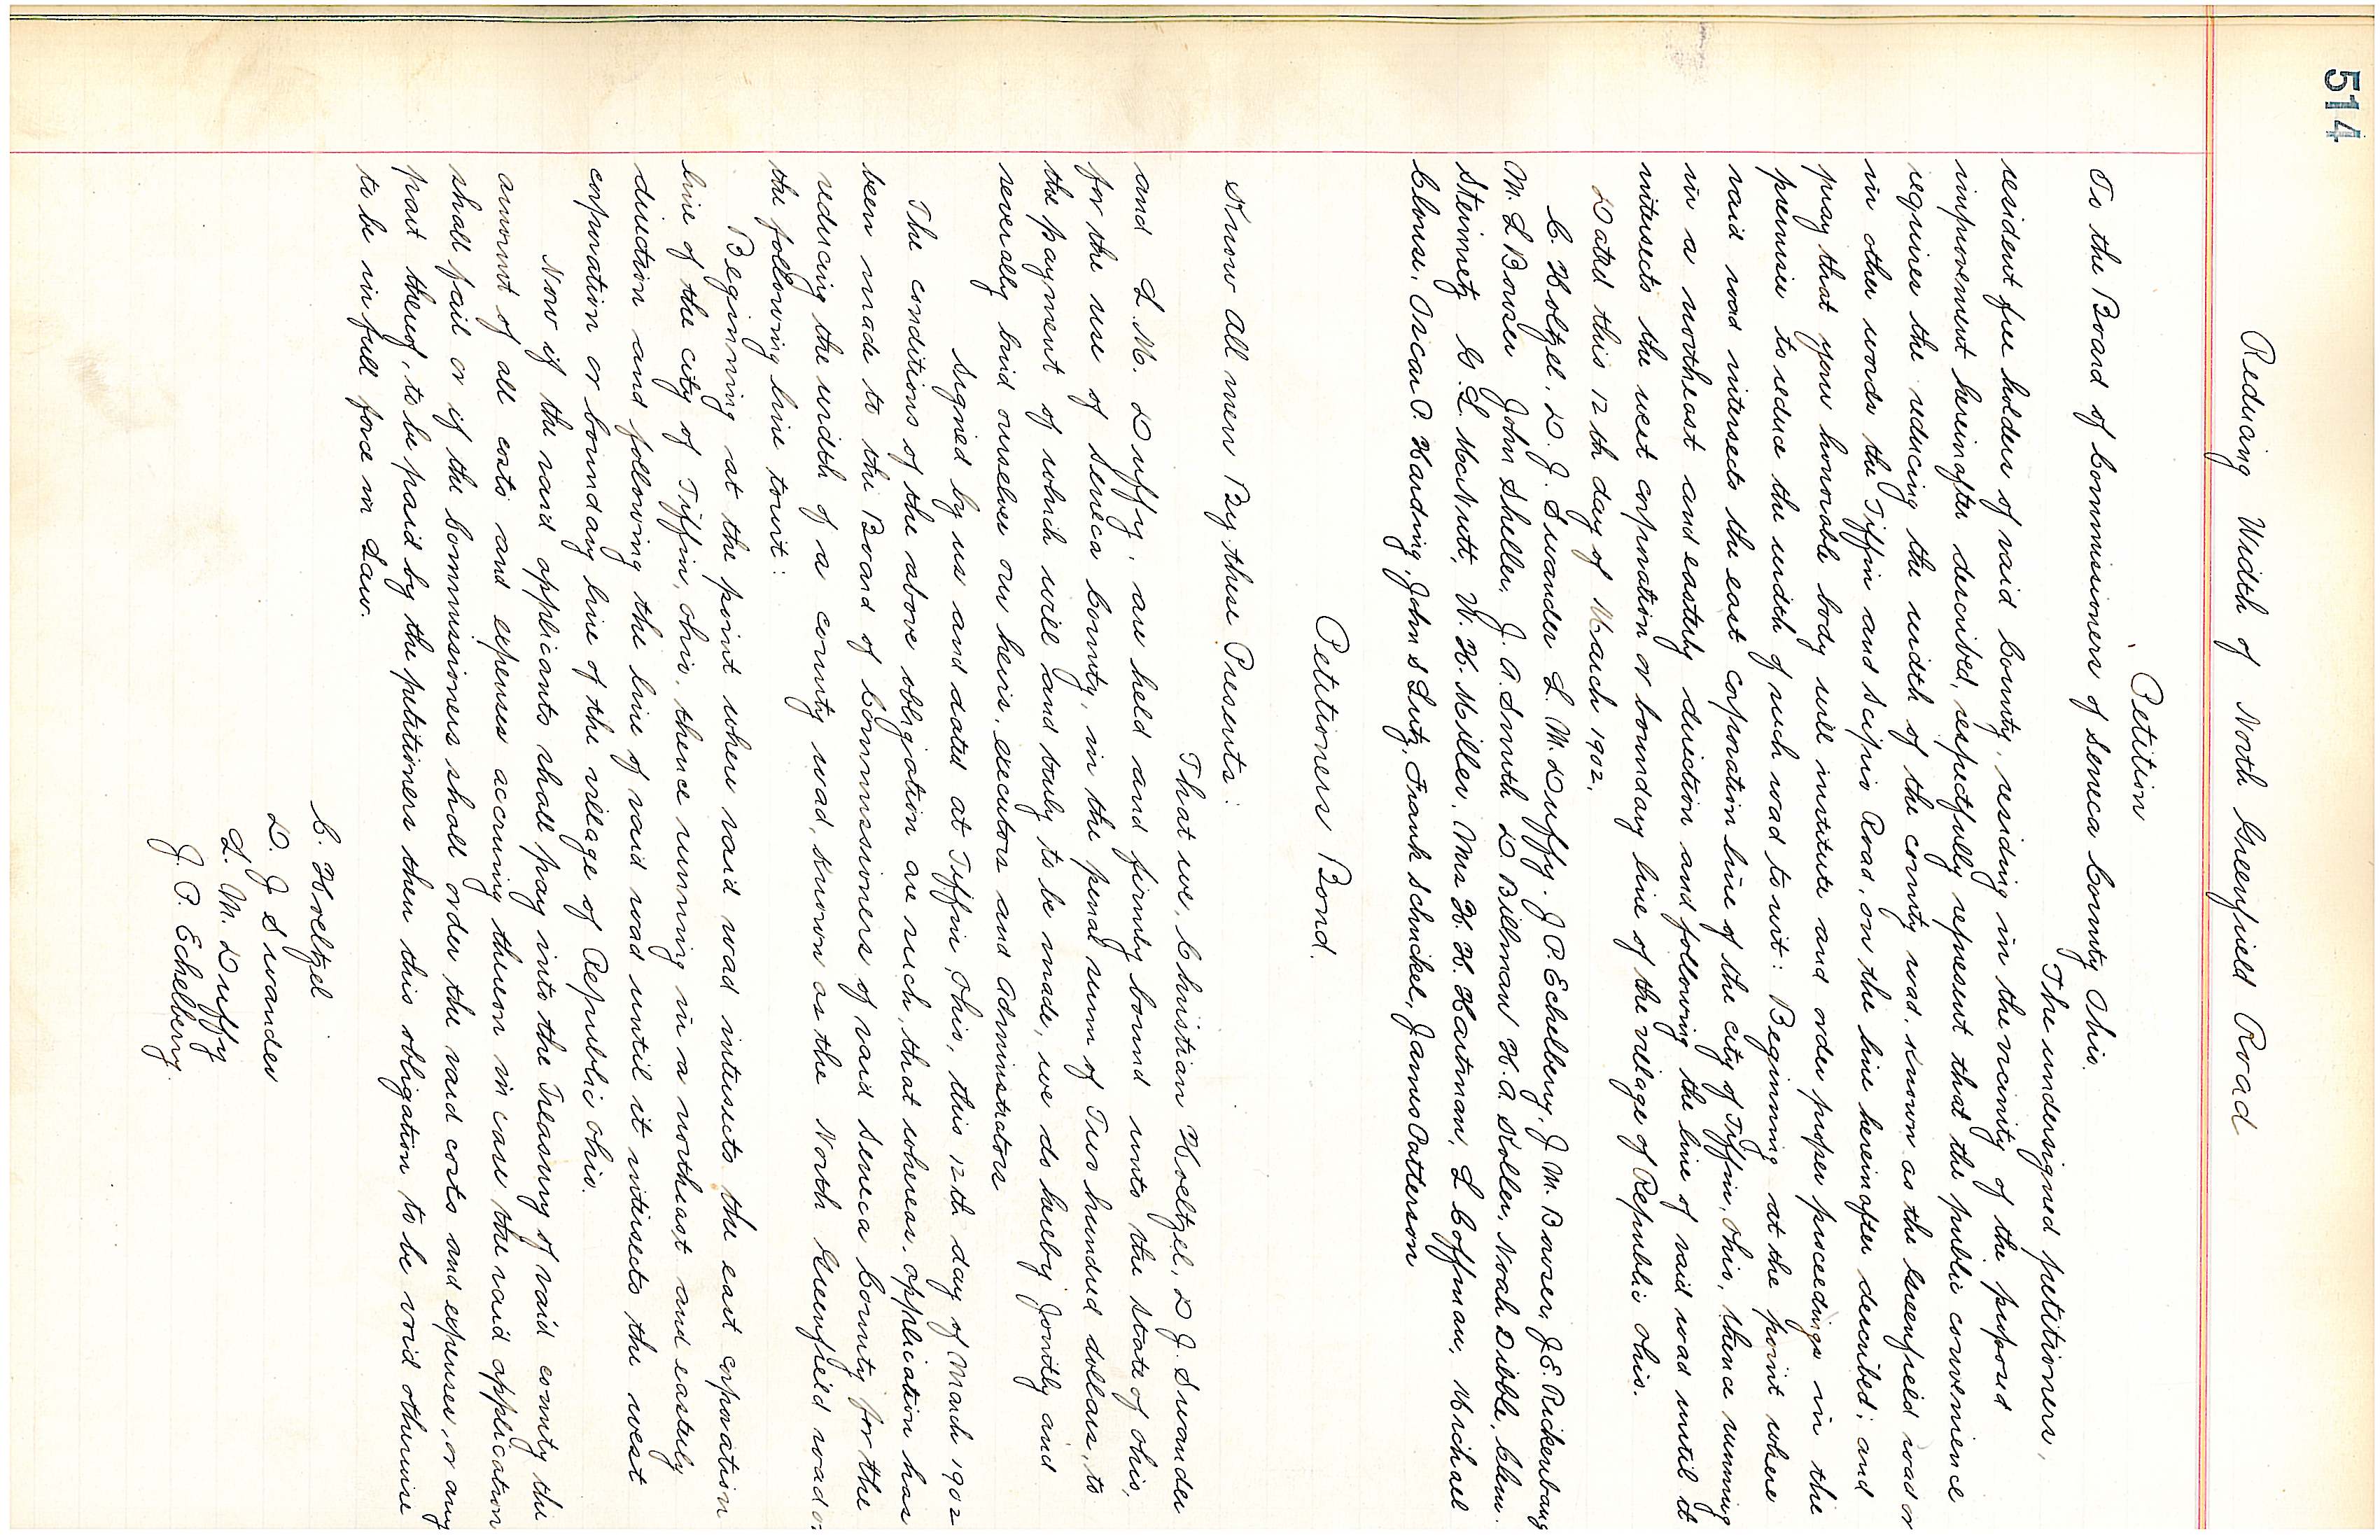 514
Reducing Width of North Greenfield Road
Petition
To the Board of Commissioners of Seneca County Ohio.
The undersigned petitioners,
resident free holders of said County, residing in the vicinity of the proposed
improvement hereinafter described, respectfully represent that the public convenience
requires the reducing the width of the county road, known as the Greenfield road or
in other words the Tiffin and Scipio Road, on the line hereinafter described; and
pray that your honorable body will institute and order proper proceedings in the
premise to reduce the width of such road to wit: Beginning at the point where
said road intersects the east corporation line of the city of Tiffin, Ohio, thence running
in a northeast and easterly direction and following the line of said road until it
intersects the west corporation or boundary line of the village of Republic Ohio.
Dated this 12th day of March 1902.
C. Holtzel, D. J. Swander L. M. Duffy. J P. Echelberry, J M. Bowser, J. E. Rickenbaug
M. L Bowser John Sheller, J. A. Smith D. Billman H. A. Koller, Noah Dibble, Clem.
Steinmetz G. L. McNutt, W. H. Miller, Mrs H. H. Hartman, L Coffman, Michael
Clouse, Oscar P. Harding, John S Lutz, Frank Schickel, James Patterson
Petitioners Bond.
Know All men By these Presents:
That we, Christian Hoeltzel, D J. Swander
and L. M. Duffy, are held and firmly bound unto the State of Ohio,
for the use of Seneca County, in the penal sum of Two hundred dollars, to
the payment of which well and truly to be made, we do hereby Jointly and
severally bind ourselves our heirs, executors and Administrators
Signed by us and dated at Tiffin, Ohio, this 12th day of March 1902
The conditions of the above obligation are such, that whereas, application has
been made to the Board of Commissioners of said Seneca County for the
reducing the width of a county road, known as the North Greenfield road on
the following line towit:
Beginning at the point where said road intersects the east corporation
line of the city of Tiffin, Ohio, thence running in a northeast and easterly
direction and following the line of said road until it intersects the west
corporation or boundary line of the village of Republic Ohio.
Now if the said applicants shall pay into the Treasury of said county the
amount of all costs and expenses accruing thereon in case the said application
shall fail or if the Commissioners shall order the said costs and expenses, or any
part thereof, to be paid by the petitioners then this obligation to be void otherwise
to be in full force in Law.
C. Hoeltzel
D. J Swander
L. M. Duffy
J. P. Echelberry.